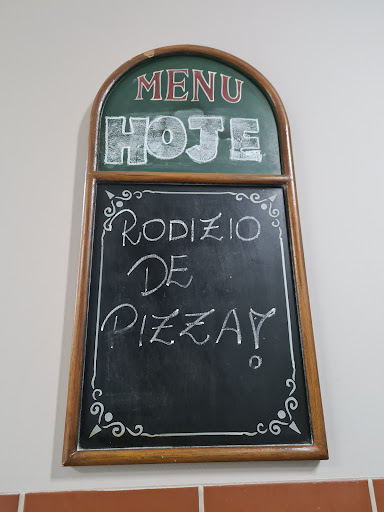 MENU
HOJE
RODIZIO
DE
PIZZA!